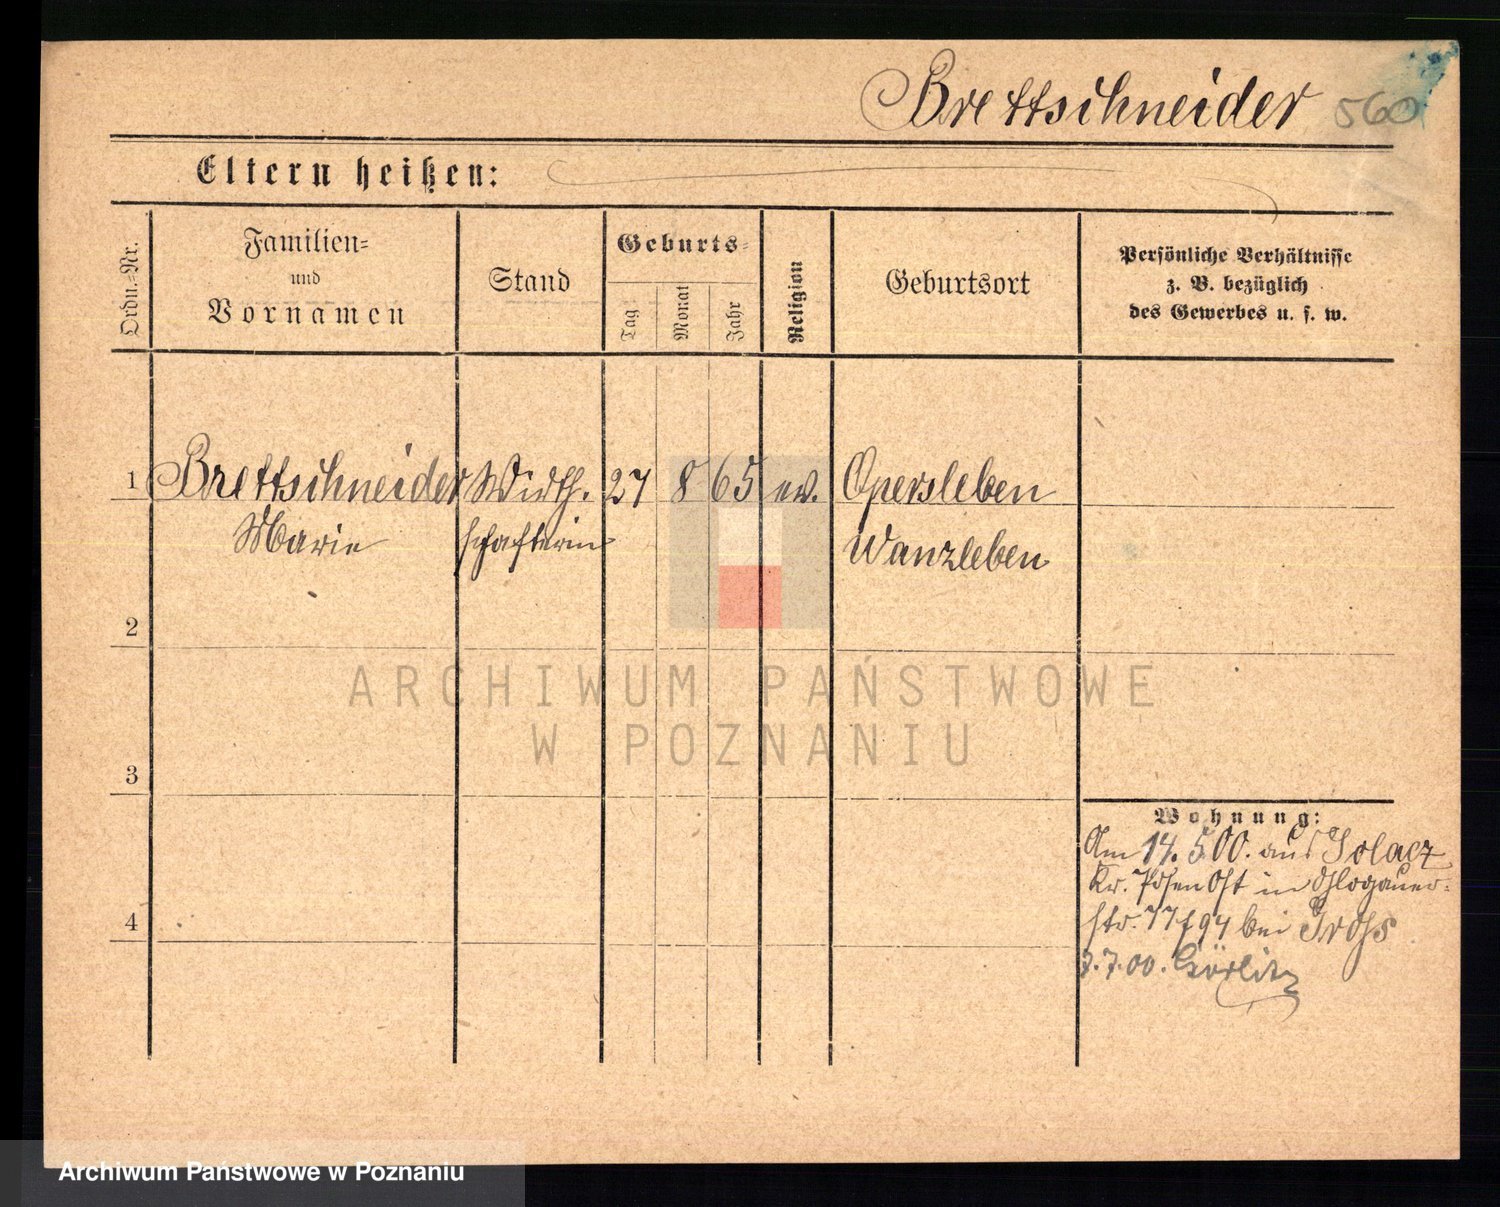 Brettschneider 560
Eltern heißen:
Ordn.-Nr.
Familien-
und
Vornamen
Stand
Geburts-
Tag
Monat
Jahr
Religion
Geburtsort
Persönliche Verhältnisse
z. B. bezüglich
des Gewerbes u. s. w.
1 Brettschneider Wirth. 27 8 65 ev. Opersleben
Marie schafterin Wanzleben
2
3
4
ARCHIWUM PAŃSTWOWE
W POZNANIU
Wohnung:
Am 14. 5 00. aus Solacz
Kr. Posen Ost in Glogauer-
str. 77/94 bei
3.7.00. Görlitz
Archiwum Państwowe w Poznaniu